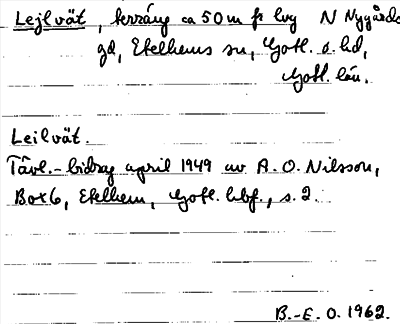 Lejlvät, terräng ca 50 m fr lvg N Nygårds
gd, Etelhems sn, Gotl. s. hd,
Gotl. län.
Leilvät.
Tävl.-bidrag april 1949 av A. O. Nilsson,
Box 6, Etelhem, Gotl. hbf., s. 2.
B.-E. O. 1962.